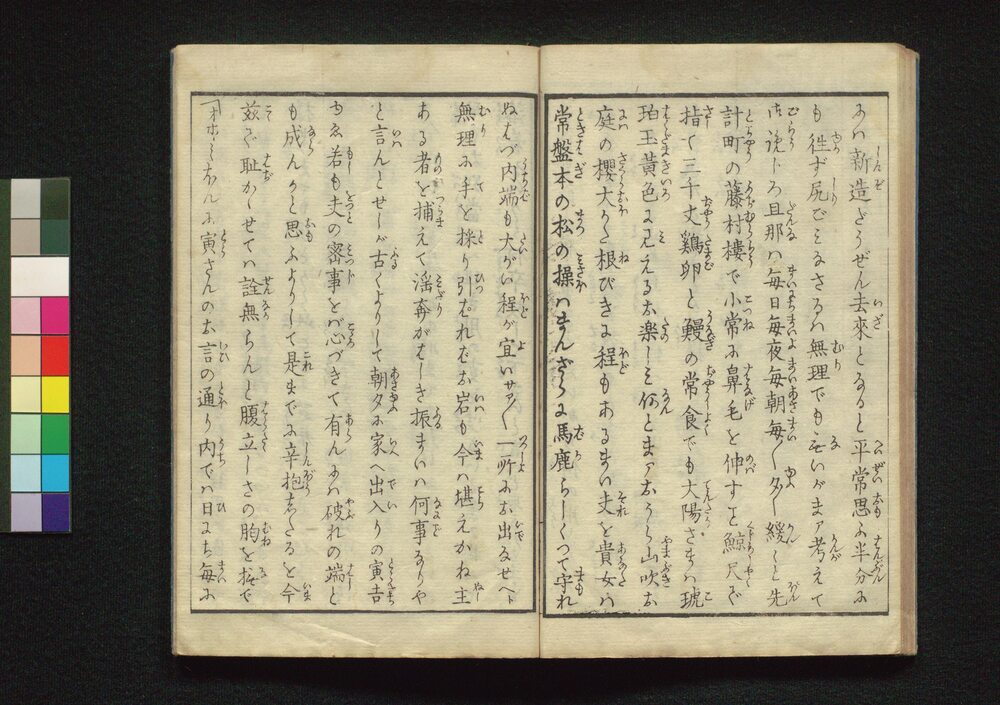 にハ新造ざうぜん去來となると平常思ふ半分に
も徃ず尻ごミなさるハ無理でも無いがまア考えて
御覧トろ旦那ハ毎日毎夜毎朝毎〱多〱緩〱と先
計町の藤村樓で小常に鼻毛を伸すを鯨尺で
指て三千丈鶏卵と鰻の常食でも大陽さまハ琥
珀玉黄色に見えるお楽しミ何とまアお うら山吹お
庭の櫻大かた根びきに程もあるまい夫を貴女ハ
常盤木の松の操ハまんざらに馬鹿らしくつて守れ
ぬはづ内端も大がい程が宜いサア〱一所にお出なせへト
無理に手を採り引むれむお岩も今ハ堪えかね主
ある者を捕えて滛奔がましき振まい何事なりや
と言んとせしが古くよりして朝夕に家へ出入りの寅吉
ゆゑ若も夫の密事を心づきて有んにハ破れの端と
も成んかと思ふよりして是までに辛抱したるを今
茲で耻かゝせてハ詮無らんと腹立しさの胸を撫で
「オホヽヽホルに寅さんのお言の通り内でハ日にち毎に